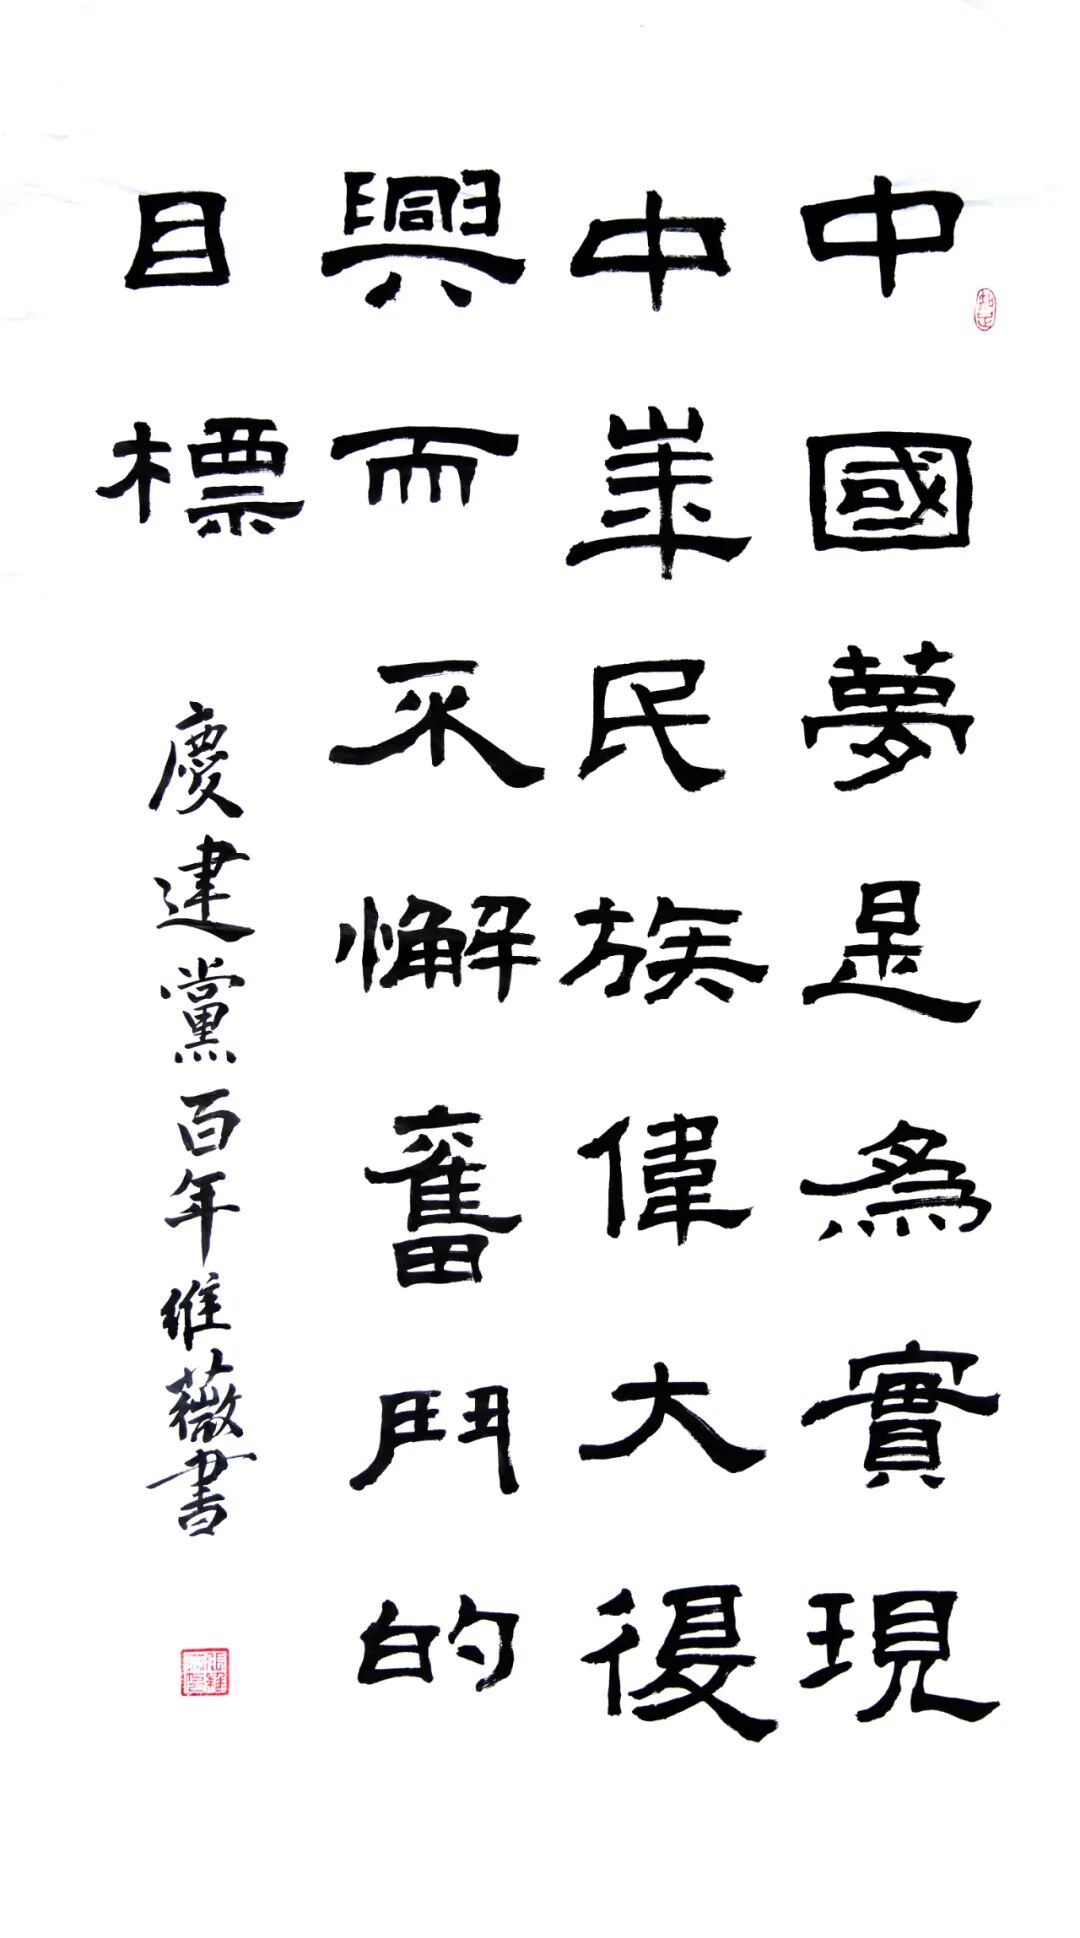 中國夢是為實現
中華民族偉大復
興而不懈奮鬥的
目標
慶建黨百年維薇書
知足